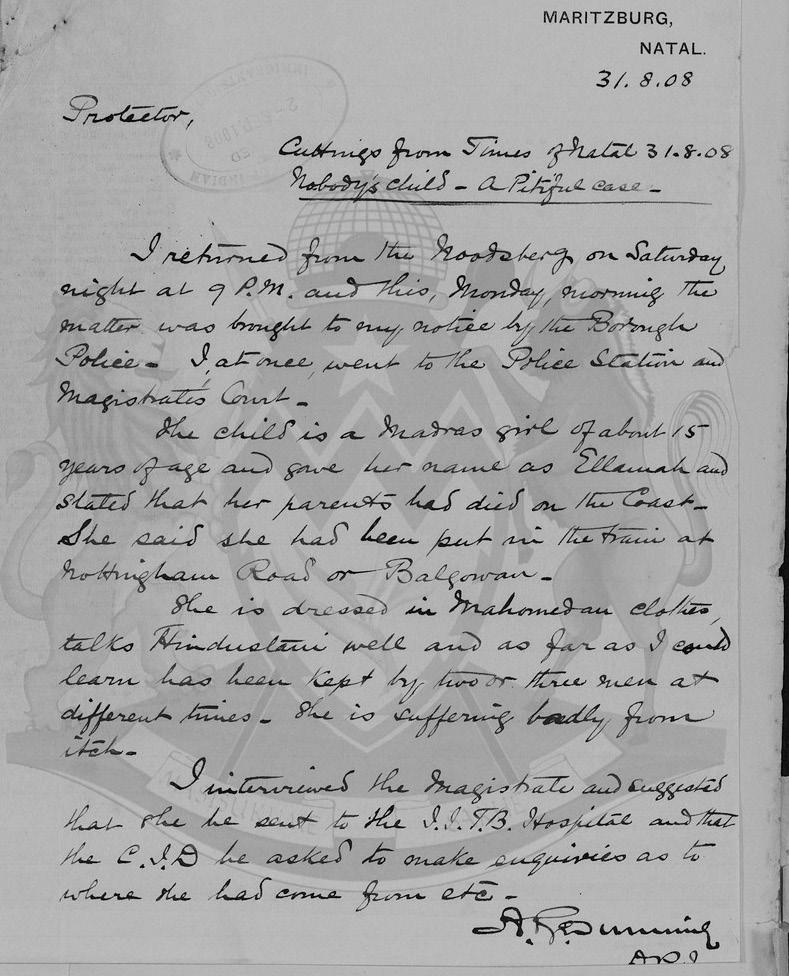 MARITZBURG,
NATAL.
31.8.08
Protector,
Cuttings from Times of Natal 31.8.08
Nobody's child - A Pitiful case -
I returned from the Noodsberg on Saturday
night at 9 P.M. and this, Monday, morning the
matter was brought to my notice by the Borough
Police - I, at once, went to the Police Station and
Magistrate's Court -
The child is a Madras girl of about 15
years of age and gave her name as Ellamah and
stated that her parents had died on the Coast -
She said she had been put in the train at
Nottingham Road or Balgowan -
She is dressed in Mahomedan clothes,
talks Hindustani well and as far as I could
learn has been kept by two or three men at
different times - She is suffering badly from
itch -
I interviewed the Magistrate and suggested
that she be sent to the I.I.T.B. Hospital and that
the C.I.D be asked to make enquiries as to
where she had come from etc -